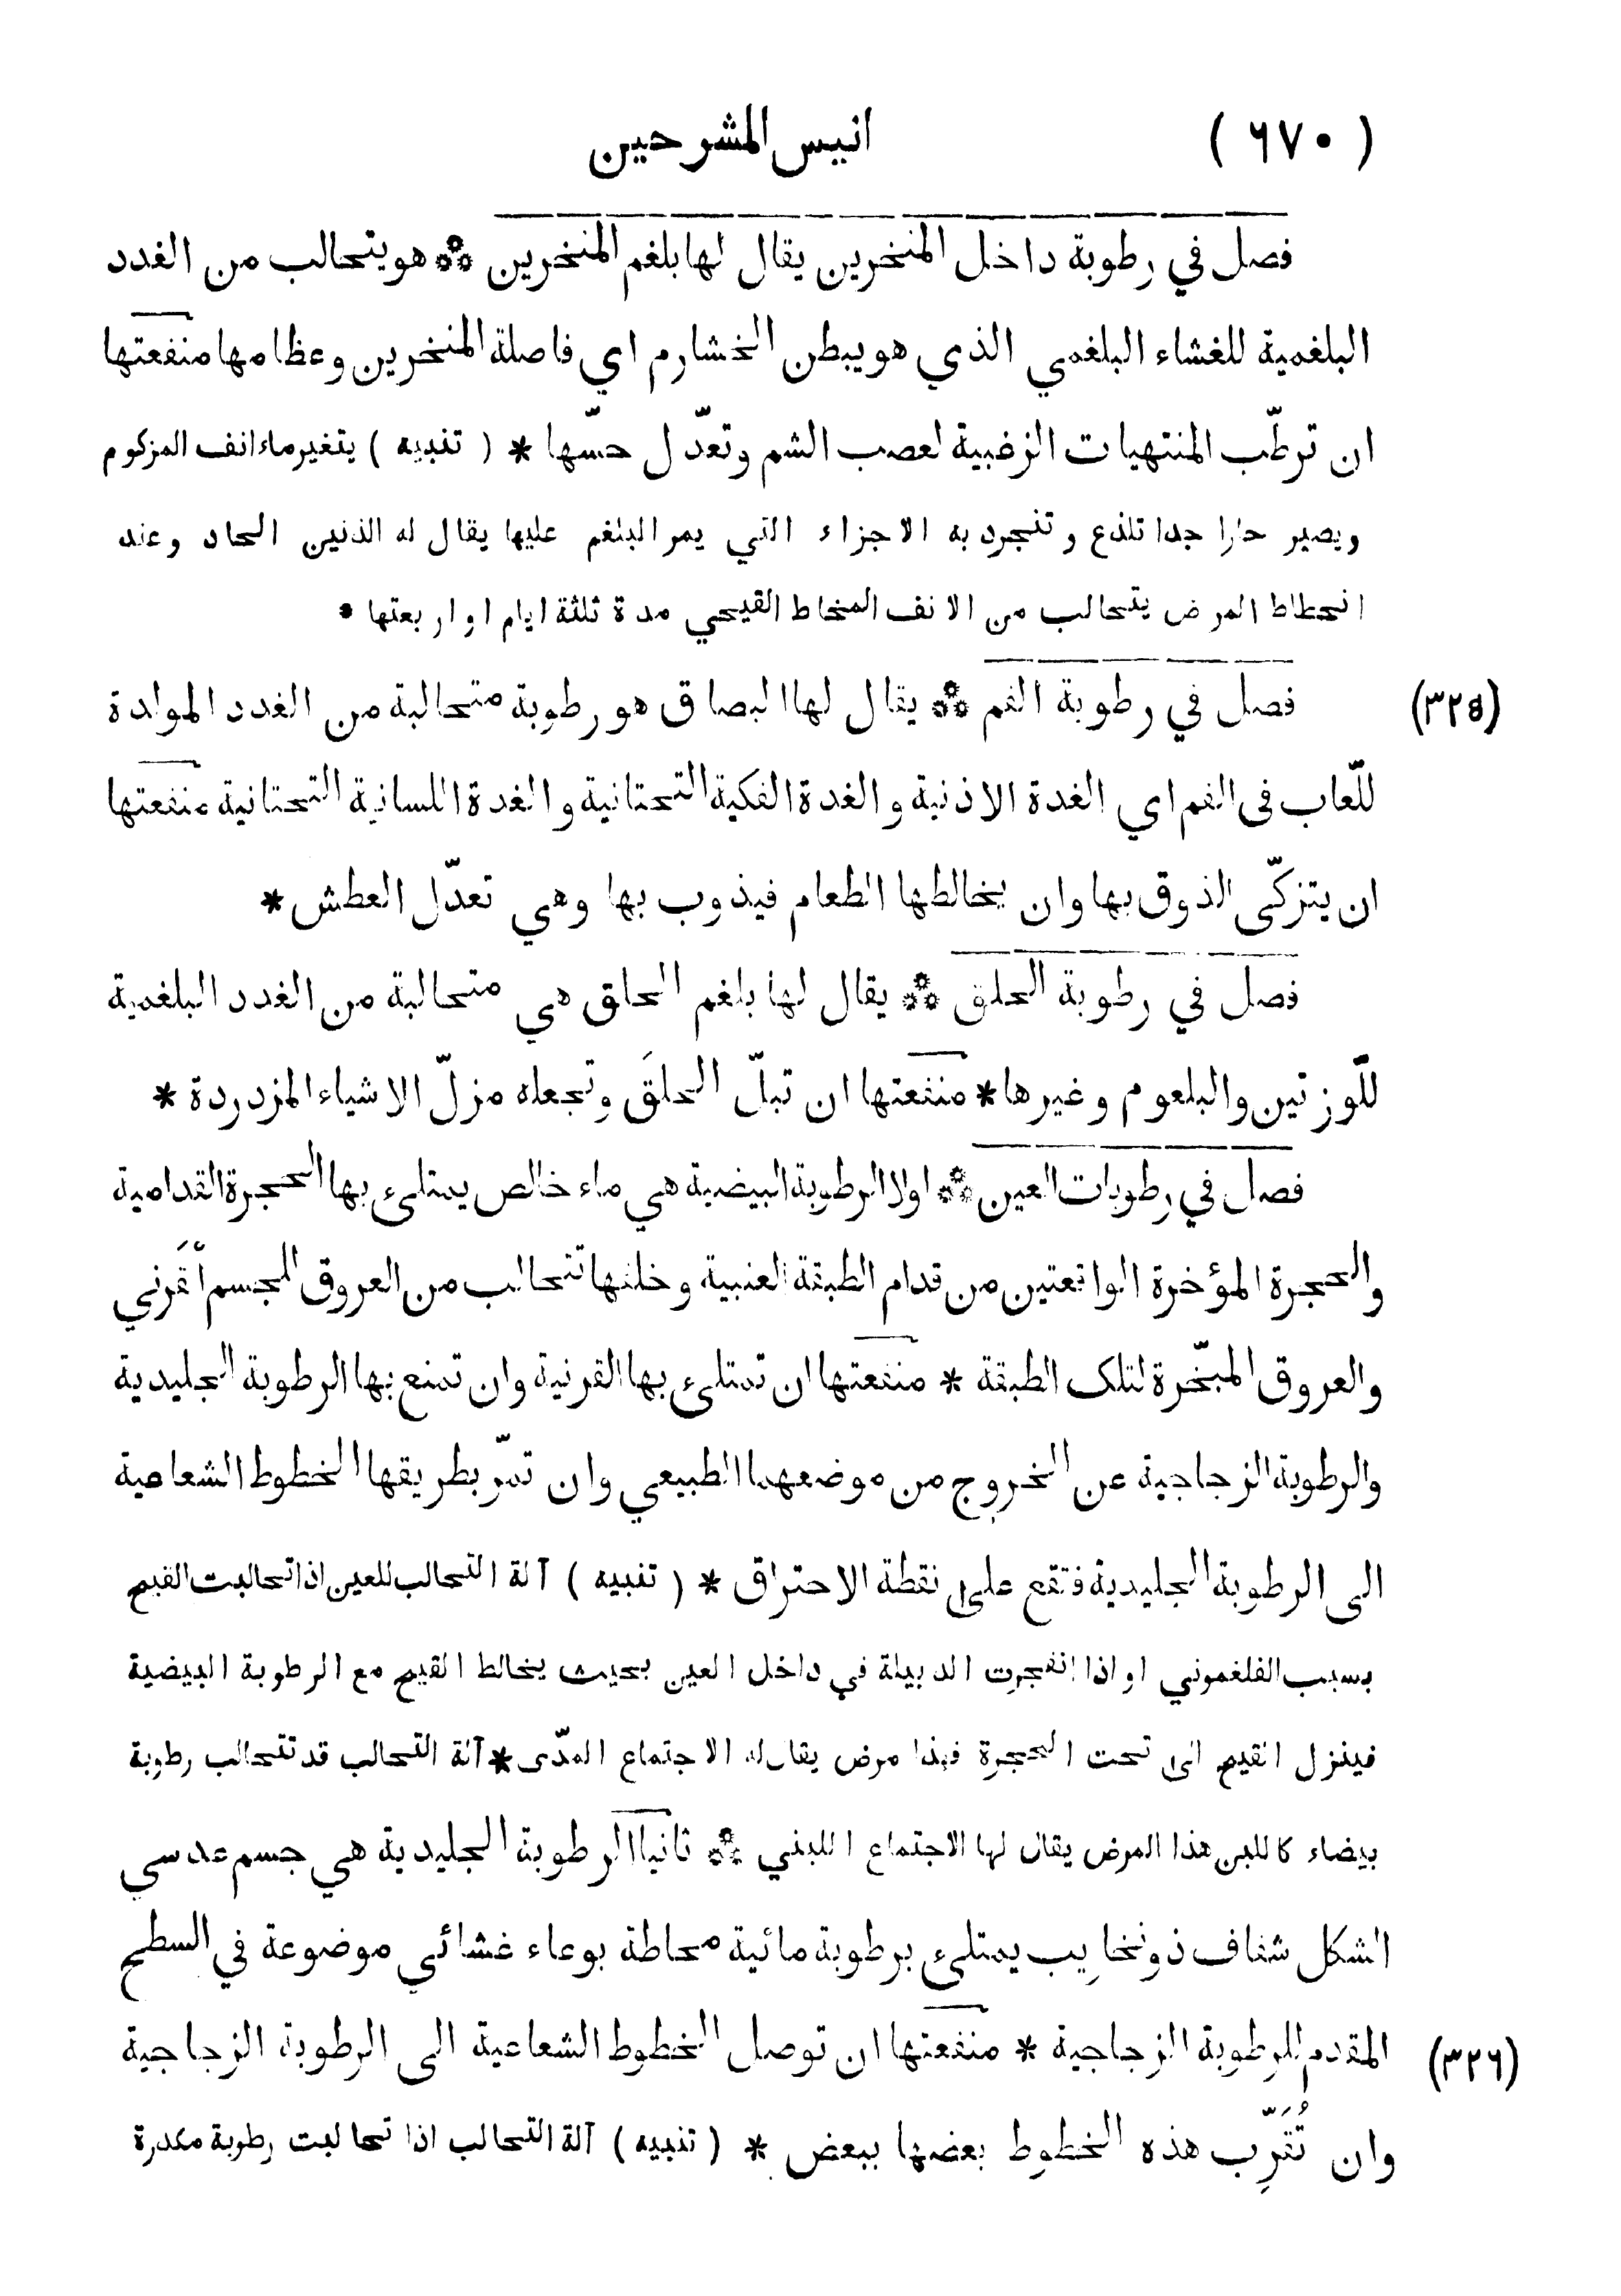 ( ٦٧٠ ) انيس المشرحين
فصل في رطوبة داخل المنخرين يقال لها بلغم المنخرين ⁂ هو يتحالب من الغدد
البلغمية للغشاء البلغمي الذي هو يبطن الخشارم اي فاصلة المنخرين وعظامها منفعتها
ان ترطّب المنتهيات الزغبية لعصب الشم وتعدّل حسّها * ( تنبيه ) يتغير ماء انف المزكوم
ويصير حارا جدا تلذع و تنجرد به الاجزاء التي يمر البلغم عليها يقال له الذنين الحاد وعند
انحطاط المرض يتحالب من الانف المخاط القيحي مدة ثلثة ايام او اربعتها •
(٣٢٥) فصل في رطوبة الفم ⁂ يقال لها البصاق هو رطوبة متحالبة من الغدد الموادة
للّعاب فى الفم اي الغدة الاذنية و الغدة الفكية التحتانية و الغدة اللسانية التحتانية منفعتها
ان يتزكّى الذوق بها وان يخالطها الطعام فيذوب بها وهي تعدّل العطش *
فصل في رطوبة الحلق ⁂ يقال لها بلغم الحلق هي متحالبة من الغدد البلغمية
للّوزتين والبلعوم وغيرها * منفعتها ان تبلّ الحلقَ وتجعله مزلّ الاشياء المزدردة *
فصل في رطوبات العين ⁂ اولا الرطوبة البيضية هي ماء خالص يمتلىء بها الحجرة القدامية
والحجرة المؤخرة الواقعتين من قدام الطبقة العنبية وخلفها تتحالب من العروق للجسم القرني
والعروق المبخّرة لتلك الطبقة * منفعتها ان تمتلىء بها القرنية وان تمنع بها الرطوبة الجليدية
والرطوبة الزجاجية عن الخروج من موضعهما الطبيعي وان تمرّ بطريقها الخطوط الشعاعية
الى الرطوبة الجليدية فتقع على نقطة الاحتراق * ( تنبيه ) آلة التحالب للعين اذا تحالبت القيح
بسبب الفلغموني او اذا انفجرت الدبيلة في داخل العين بحيث يخالط القيح مع الرطوبة البيضية
فينزل القيح الى تحت الحجرة فهذا مرض يقال له الاجتماع المدّى * آلة التحالب قد تتحالب رطوبة
بيضاء كاللبن هذا المرض يقال لها الاجتماع اللبني ⁂ ثانيا الرطوبة الجليدية هي جسم عدسي
الشكل شفاف ذو نخاريب يمتلىء برطوبة مائية محاطة بوعاء غشائي موضوعة في السطح
(٣٢٦) المقدم للرطوبة الزجاجية * منفعتها ان توصل الخطوط الشعاعية الى الرطوبة الزجاجية
وان تُقَرِّب هذه الخطوط بعضها ببعض * ( تنبيه ) آلة التحالب اذا تحالبت رطوبة مكدرة